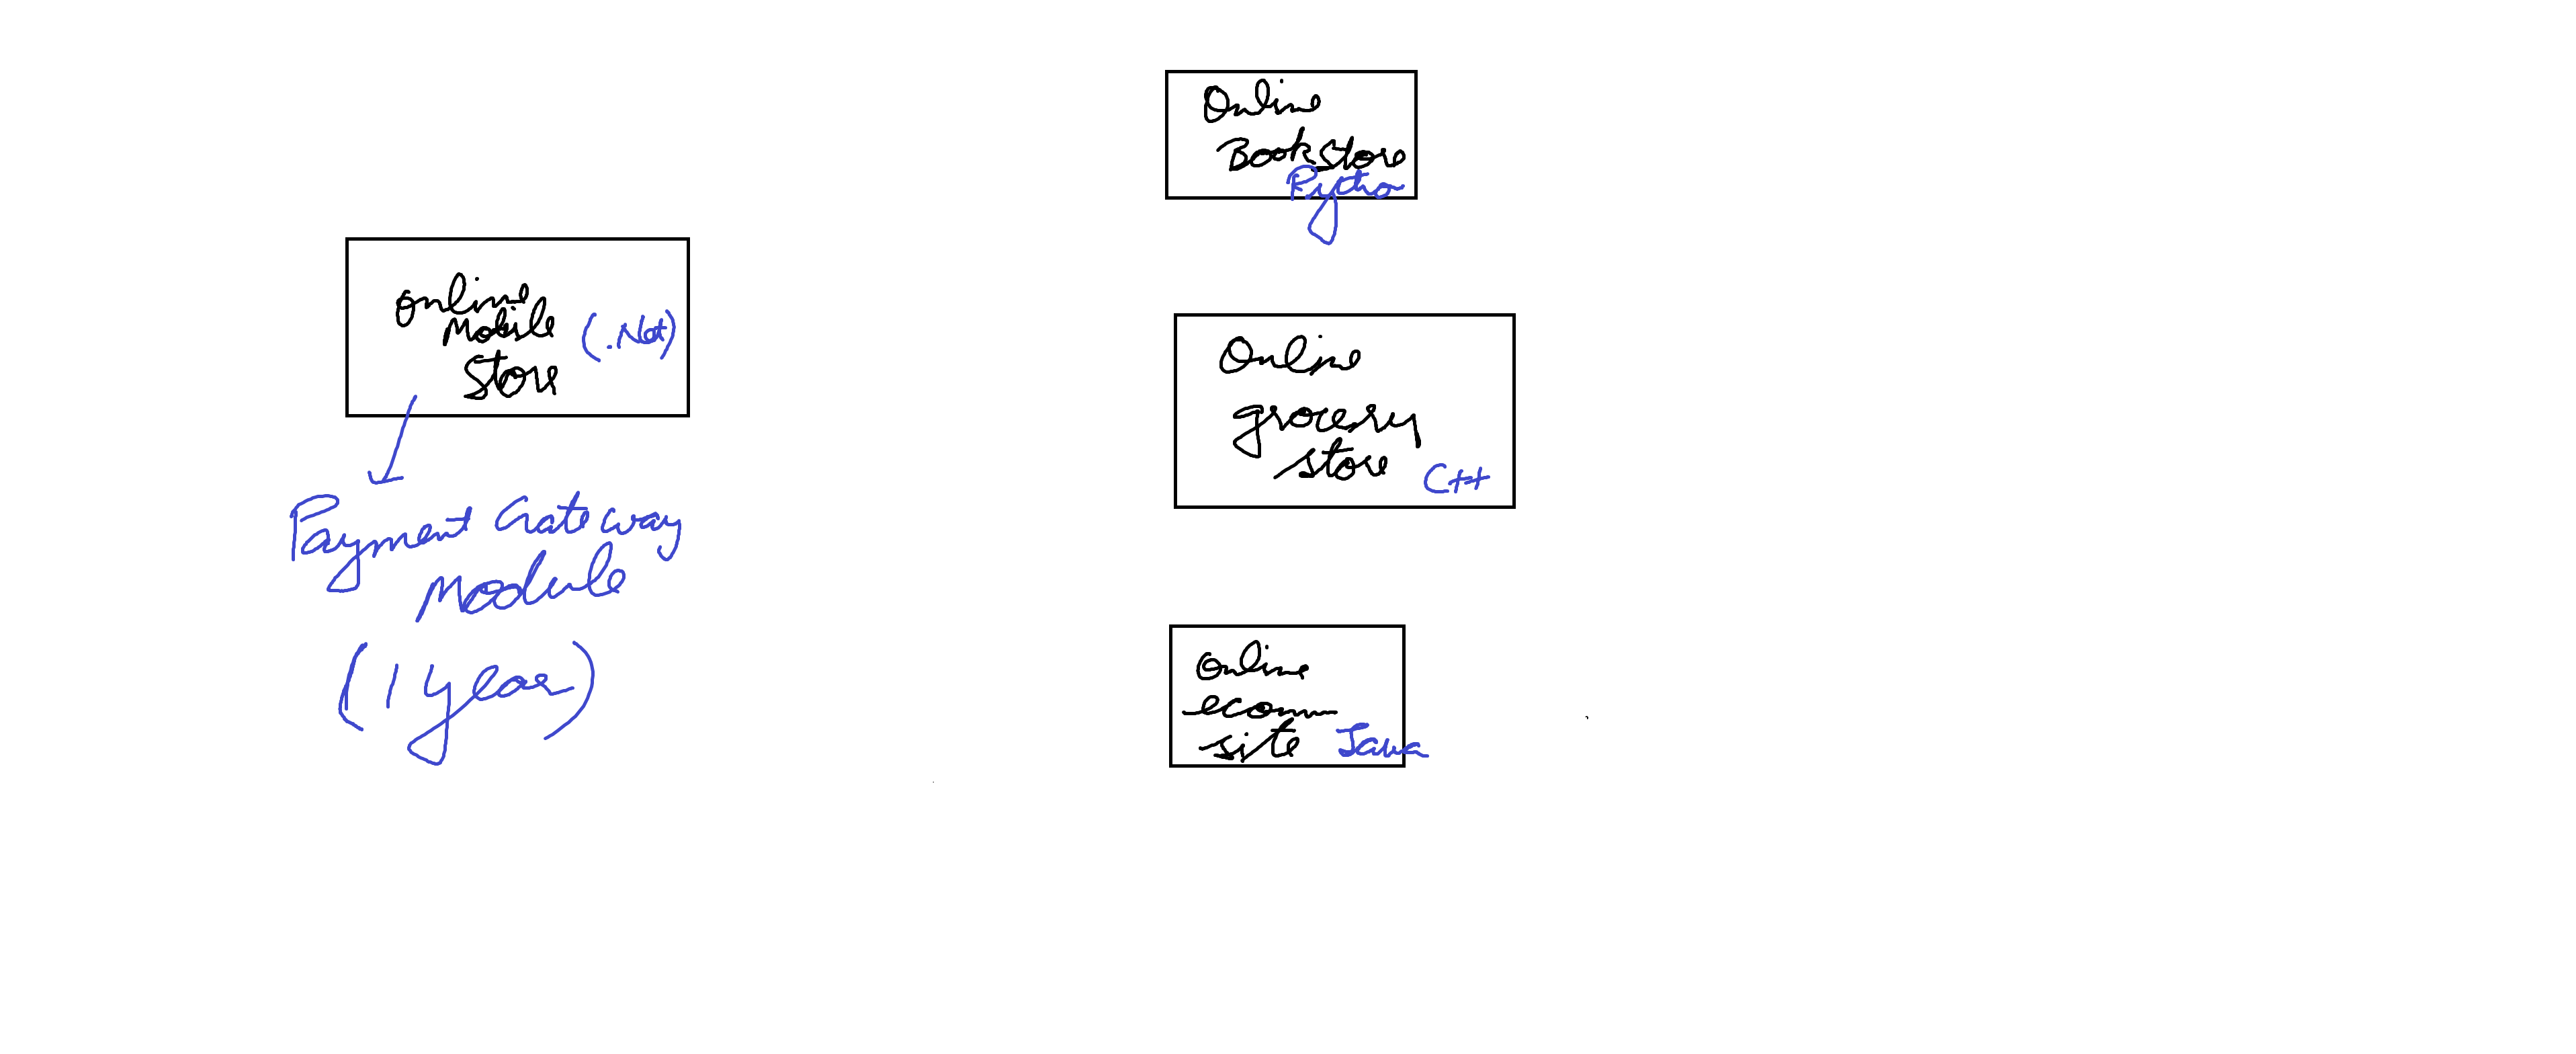 Online
Mobile
Store
(.Net)
Payment Gateway
Module
(1 year)
Online
Book Store
Pytho
Online
grocery
store
C++
Online
ecom
site
Java